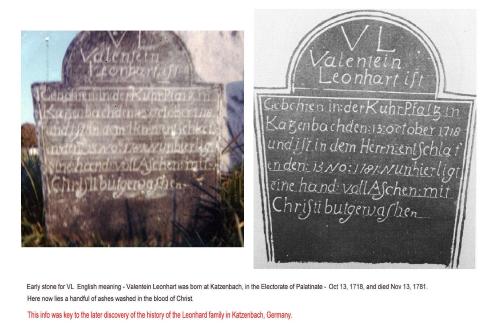 VL
Valentein
Leonhart ist
Gebohren in der Kuhr Pfaltz in
Katzenbach den: 13: october 1718
und ist in dem Herrn entschlaf
en den: 13 No: 1781. Nun hier ligt
eine hand: voll Aschen: mit
Christi but gewashen
VL
Valentein
Leonhart ist
Gebohren in der Kuhr Pfaltz in
Katzenbach den: 13: october 1718
und ist in dem Herrn entschlaf
en den: 13 No: 1781. Nun hier ligt
eine hand: voll Aschen: mit
Christi but gewashen
Early stone for VL English meaning - Valentein Leonhart was born at Katzenbach, in the Electorate of Palatinate - Oct 13, 1718, and died Nov 13, 1781.
Here now lies a handful of ashes washed in the blood of Christ.
This info was key to the later discovery of the history of the Leonhard family in Katzenbach, Germany.